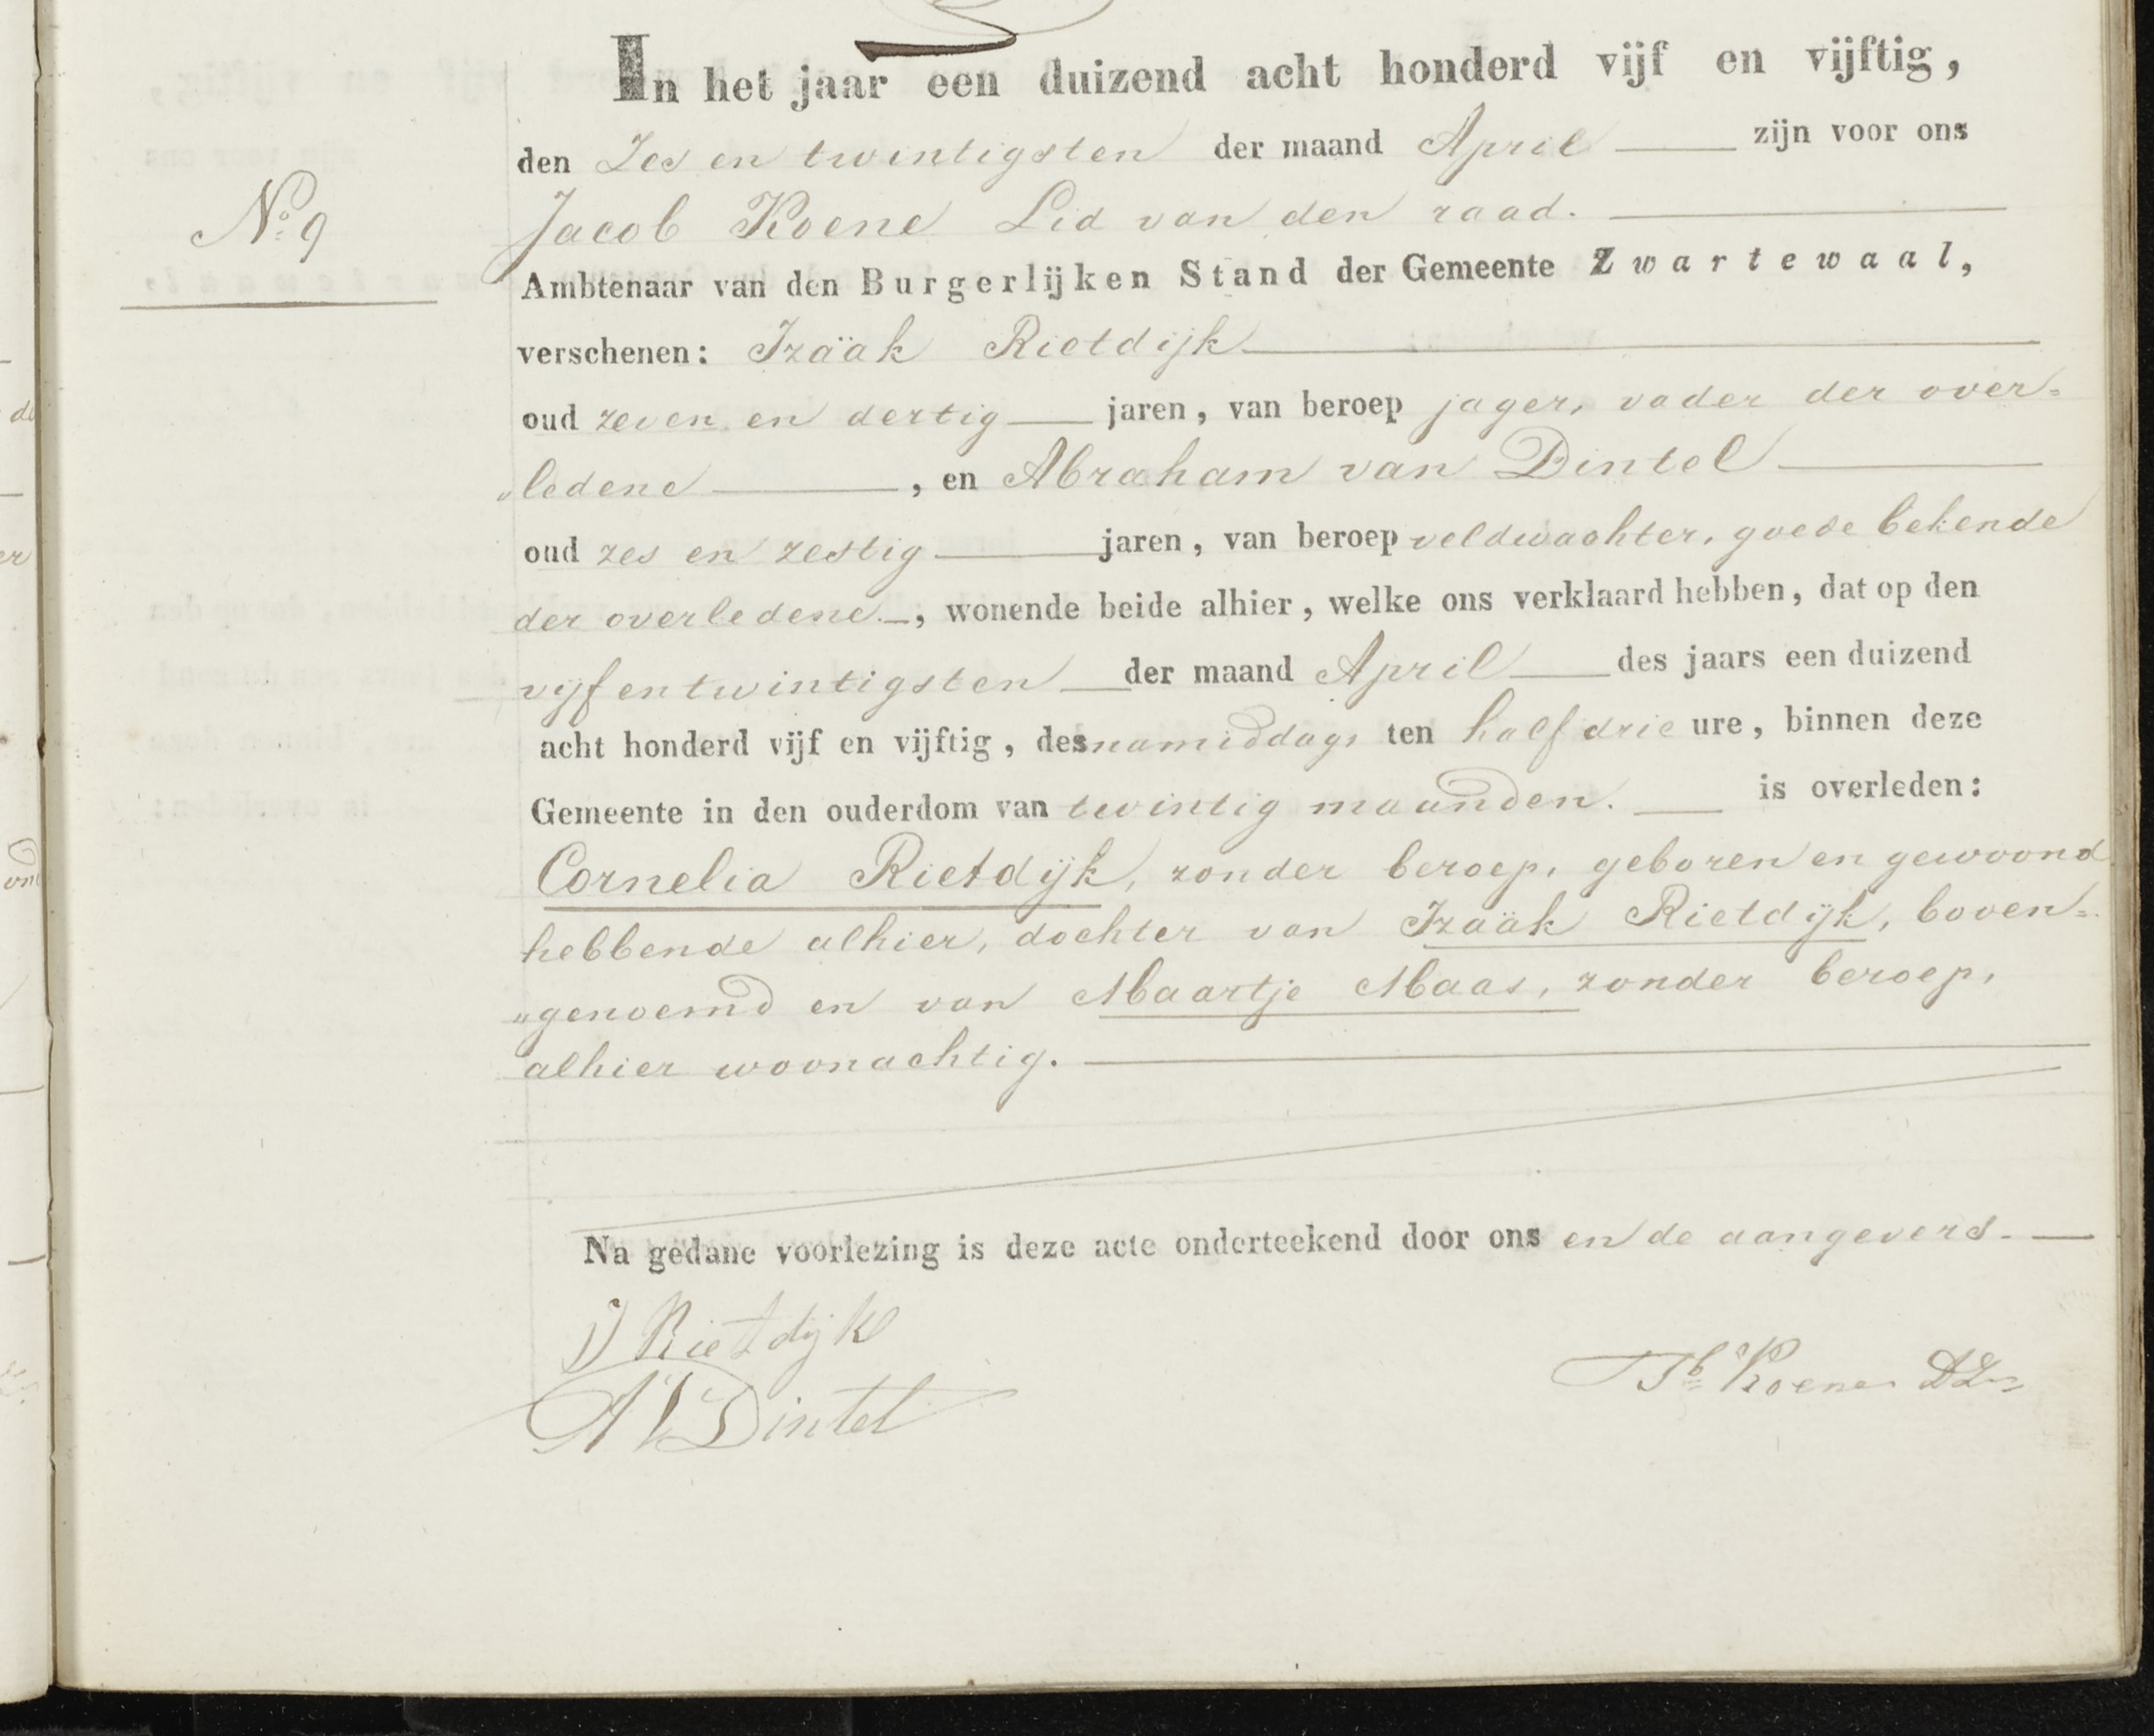 In het jaar een duizend acht honderd vijf en vijftig,
den Zes en twintigsten der maand April zijn voor ons
No. 9
Jacob Koene Lid van den raad.
Ambtenaar van den Burgerlijken Stand der Gemeente Zwartewaal,
verschenen: Izaäk Rietdijk
oud zeven en dertig jaren, van beroep jager, vader der over=
„ledene , en Abraham van Dintel
oud zes en zestig jaren, van beroep veldwachter, goede bekende
der overledene. , wonende beide alhier, welke ons verklaard hebben, dat op den
vijf en twintigsten der maand April des jaars een duizend
acht honderd vijf en vijftig, des namiddags ten half drie ure, binnen deze
Gemeente in den ouderdom van twintig maanden. is overleden:
Cornelia Rietdijk, zonder beroep, geboren en gewoond
hebbende alhier, dochter van Izaäk Rietdijk, boven=
„genoemd en van Maartje Maas, zonder beroep,
alhier woonachtig.
Na gedane voorlezing is deze acte onderteekend door ons en de aangevers.
Rietdijk
A V Dintel
Jb Koene